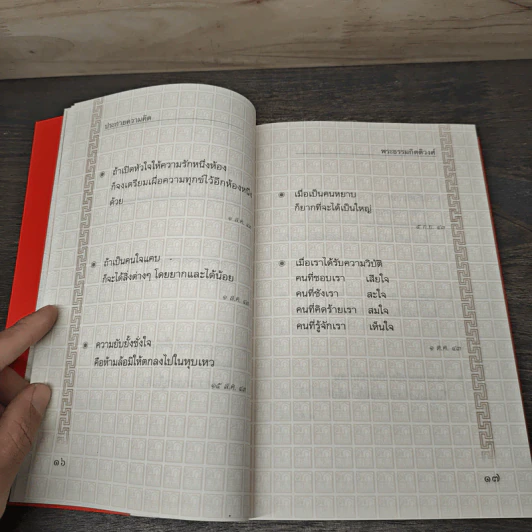 ประกายความคิด
ถ้าเปิดหัวใจให้ความรักหนึ่งห้อง
ก็จงเตรียมเผื่อความทุกข์ไว้อีกห้องหนึ่ง
ด้วย
ถ้าเป็นคนใจแคบ
ก็จะได้สิ่งต่างๆ โดยยากและได้น้อย
ความยับยั้งชั่งใจ
คือห้ามล้อมิให้ตกลงไปในหุบเหว
๑๕ ส.ค. ๔๗
๑๖
พระธรรมกิตติวงศ์
เมื่อเป็นคนหยาบ
ก็ยากที่จะได้เป็นใหญ่
เมื่อเราได้รับความวิบัติ
คนที่ชอบเรา เสียใจ
คนที่ชังเรา สะใจ
คนที่คิดร้ายเรา สมใจ
คนที่รู้จักเรา เห็นใจ
๑๗